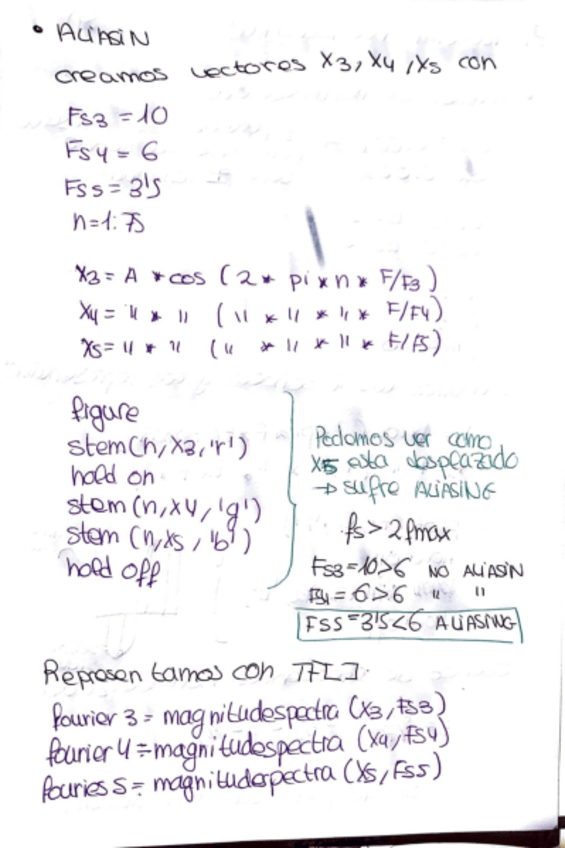 • ALIASIN
creamos vectores X3, X4, X5 con
Fs3 = 10
Fs4 = 6
Fs5 = 3'5
n=1:75
X3 = A * cos (2 * pi * n * F/F3)
X4 = " * " (" * " * " * F/F4)
X5 = " * " (" * " * " * F/F5)
figure
stem(n, X3, 'r')
hold on
stem(n, X4, 'g')
stem(n, X5, 'b')
hold off
Podemos ver como
X5 esta desplazado
→ sufre ALIASING
fs > 2fmax
FS3 = 10>6 NO ALIASIN
FS4 = 6>6 " "
FS5 = 3'5<6 ALIASING
Representamos con
fourier 3 = magnitudespectra (X3, FS3)
fourier 4 = magnitudespectra (X4, FS4)
fouries 5 = magnitudespectra (X5, FS5)